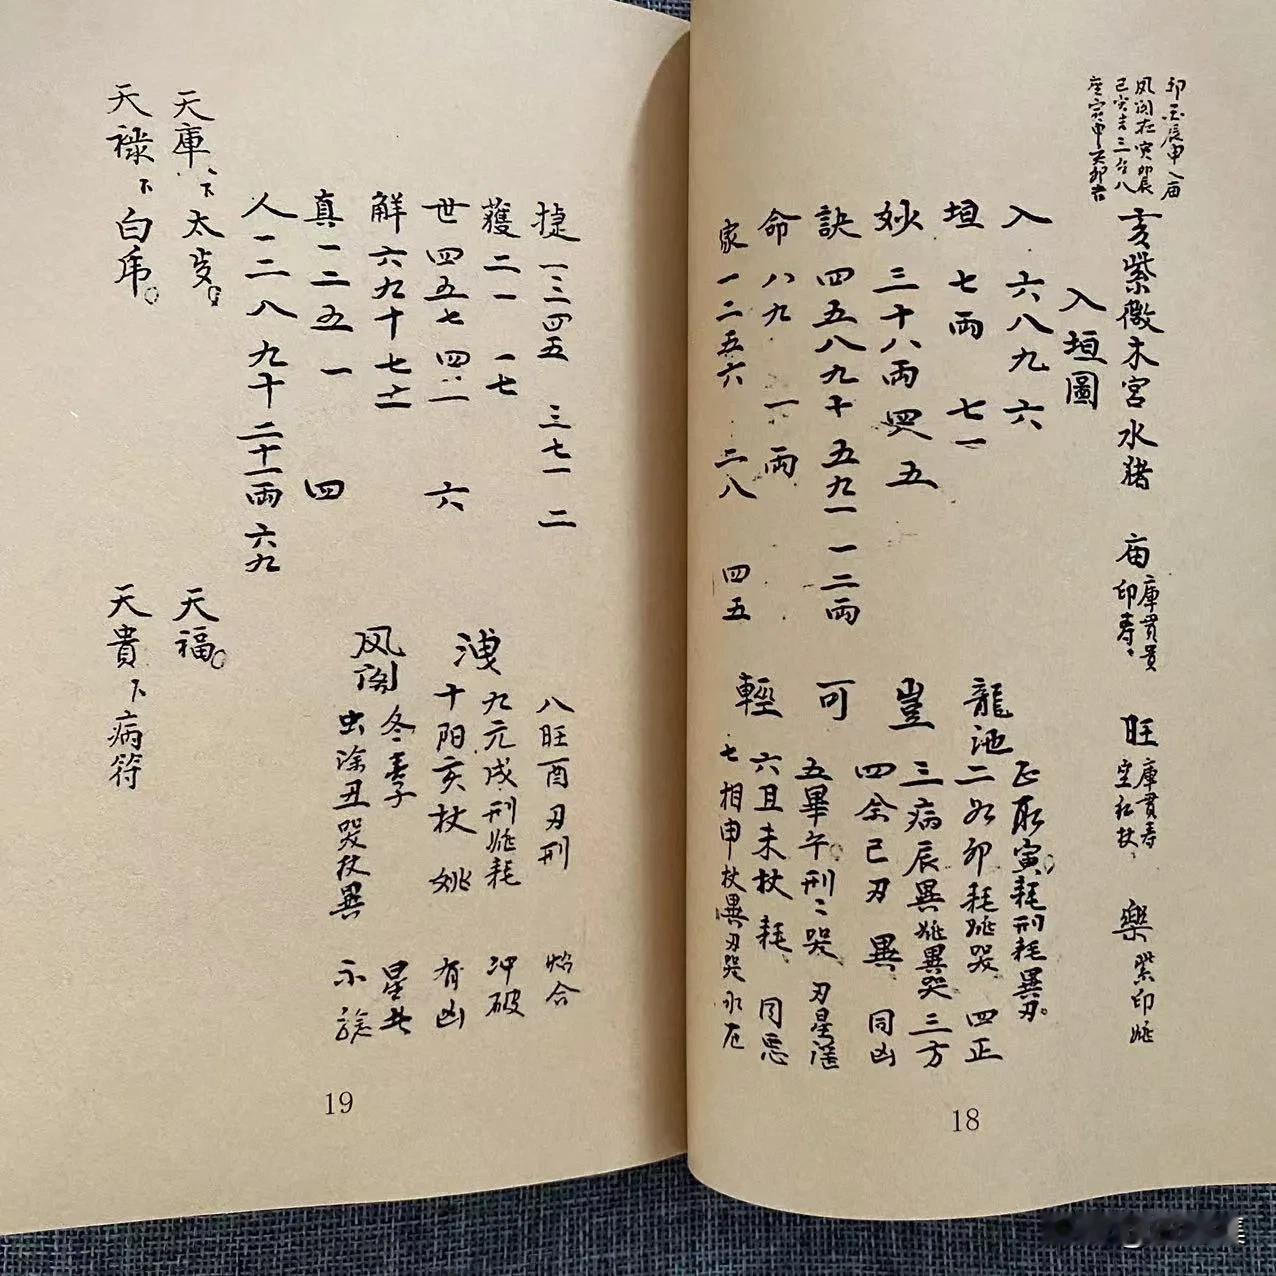 卯丑辰申入庙
凤阁在寅卯辰
巳亥吉三合八
座寅申
亥紫微木宫水猪 庙 庫贯贵印寿 旺 庫贯寿空红杖 樂 紫印姚
入垣圖
入 六八九 六
垣 七兩 七一
妙 三十八兩 四又 五
訣 四五八九十 五九一 一二兩
命 八九 一 兩
家 一二五六 二八 四五
龍池
豈
可
輕
正取寅耗刑耗異刃
二如卯耗姚哭 四正
三病辰異姚異哭 三方
四余巳刃 異 同凶
五畢午刑二哭 刃星谣
六且未杖 耗 同忌
七相申杖異刃哭 永厄
18
捷 一二四五 三七一 二
獲 二一 一七
世 四五七四二 六
解 六九十七十一
真 一二五一 四
人 一二八九十 二十一兩 六九
洩
凤阁
八旺酉刃刑 怕合
九元戌刑姚耗 冲破
十阳亥杖 姚 有凶
冬季子 星共
虫涂丑哭杖異 不
天庫下太岁 天福
天禄下白虎 天貴下病符
19